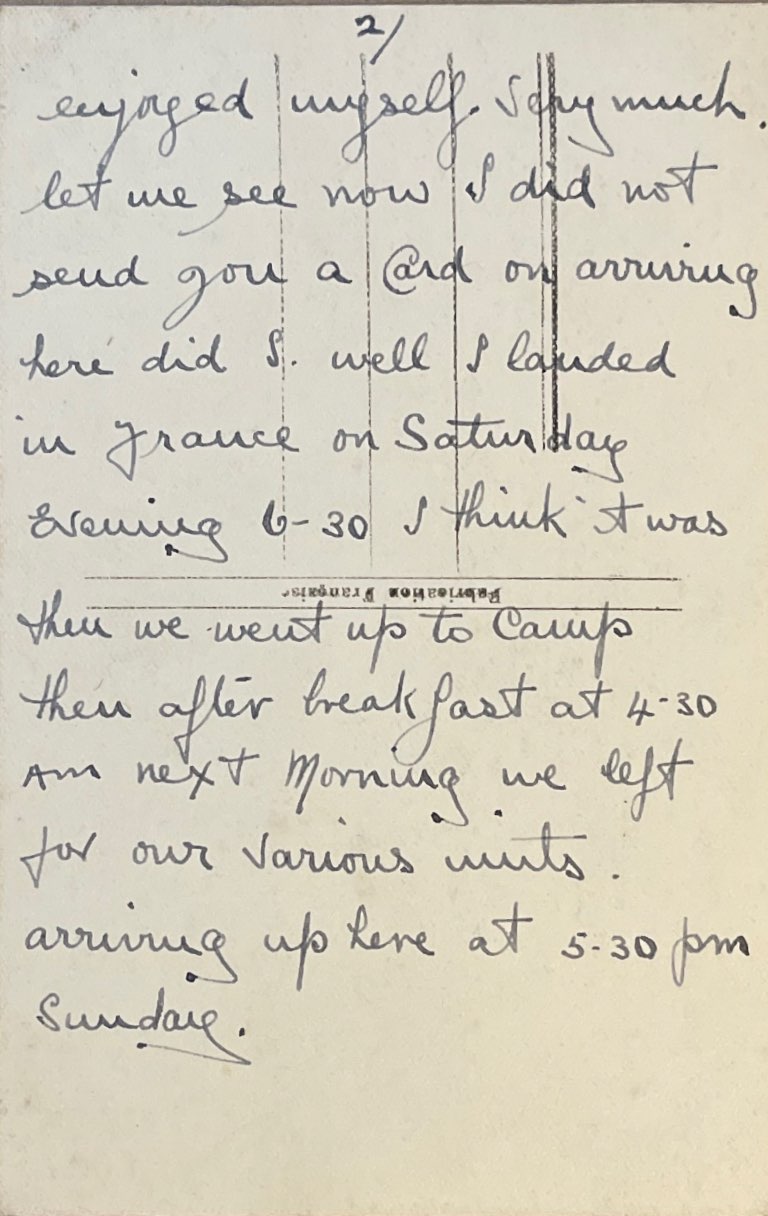 2/
enjoyed myself. Very much.
let me see now I did not
send you a Card on arriving
here did I. well I landed
in France on Saturday
Evening 6-30 I think it was
Fabrication Française
then we went up to Camp
then after breakfast at 4-30
Am next Morning we left
for our various units.
arriving up here at 5-30 pm
Sunday.